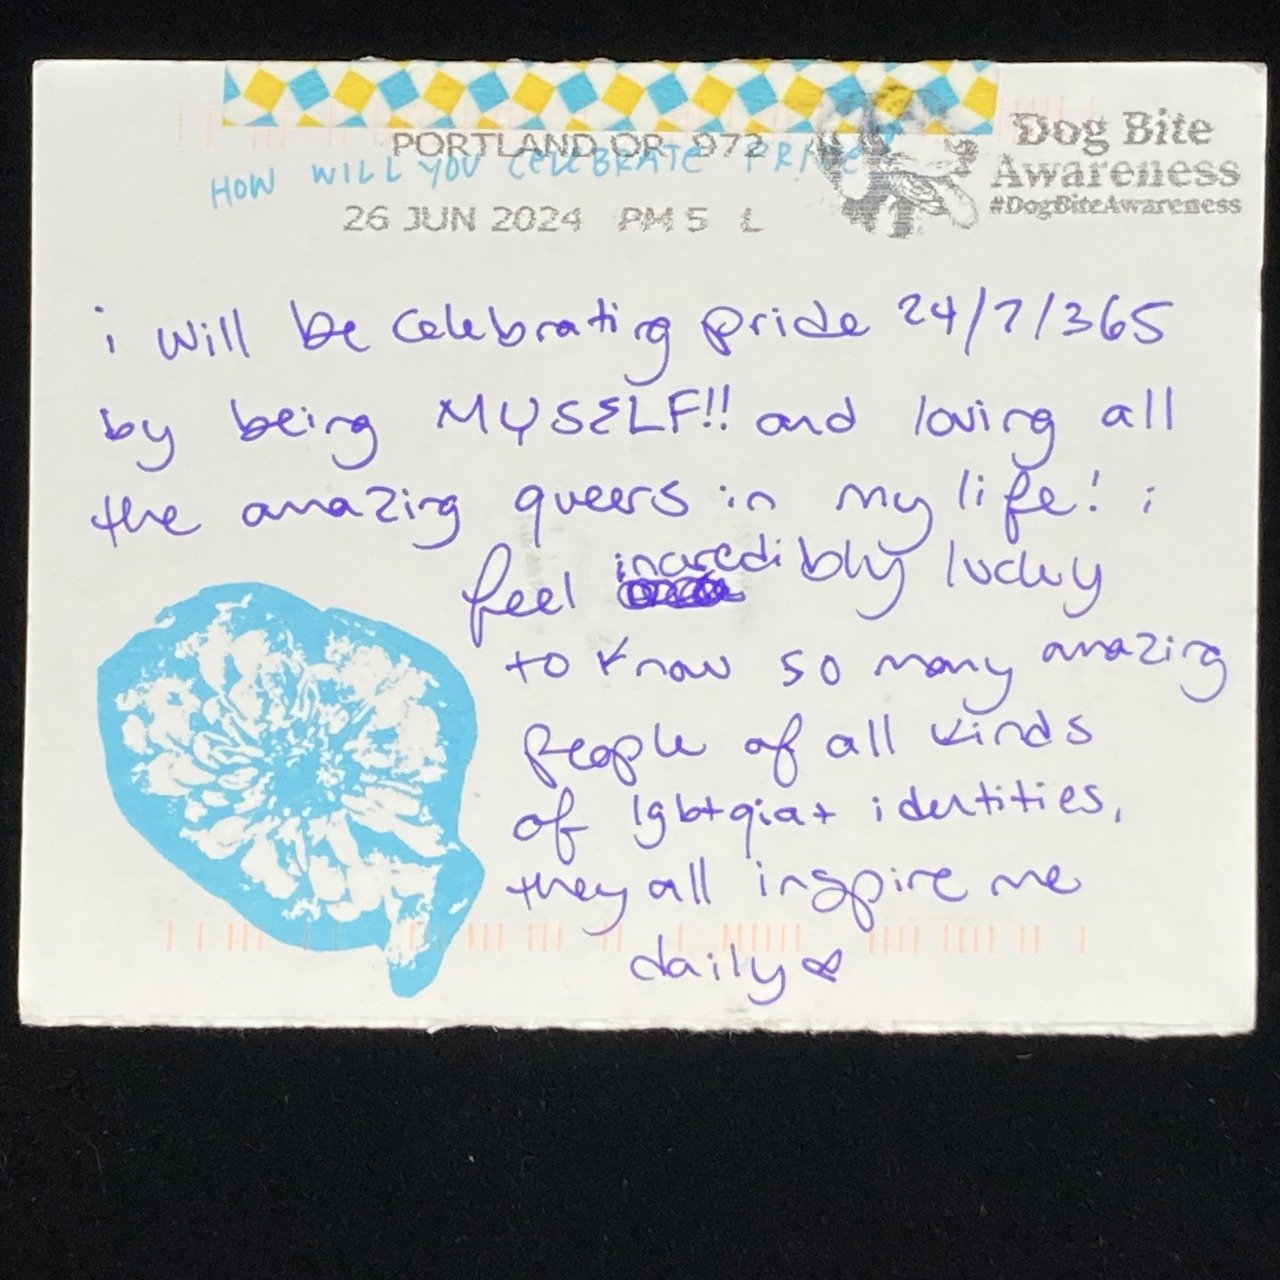 PORTLAND OR 972
Dog Bite
Awareness
#DogBiteAwareness
HOW WILL YOU CELEBRATE PRIDE
26 JUN 2024 PM 5 L
i will be celebrating pride 24/7/365
by being MYSELF!! and loving all
the amazing queers in my life! i
feel incredibly lucky
to know so many amazing
people of all kinds
of lgbtqia+ identities,
they all inspire me
daily